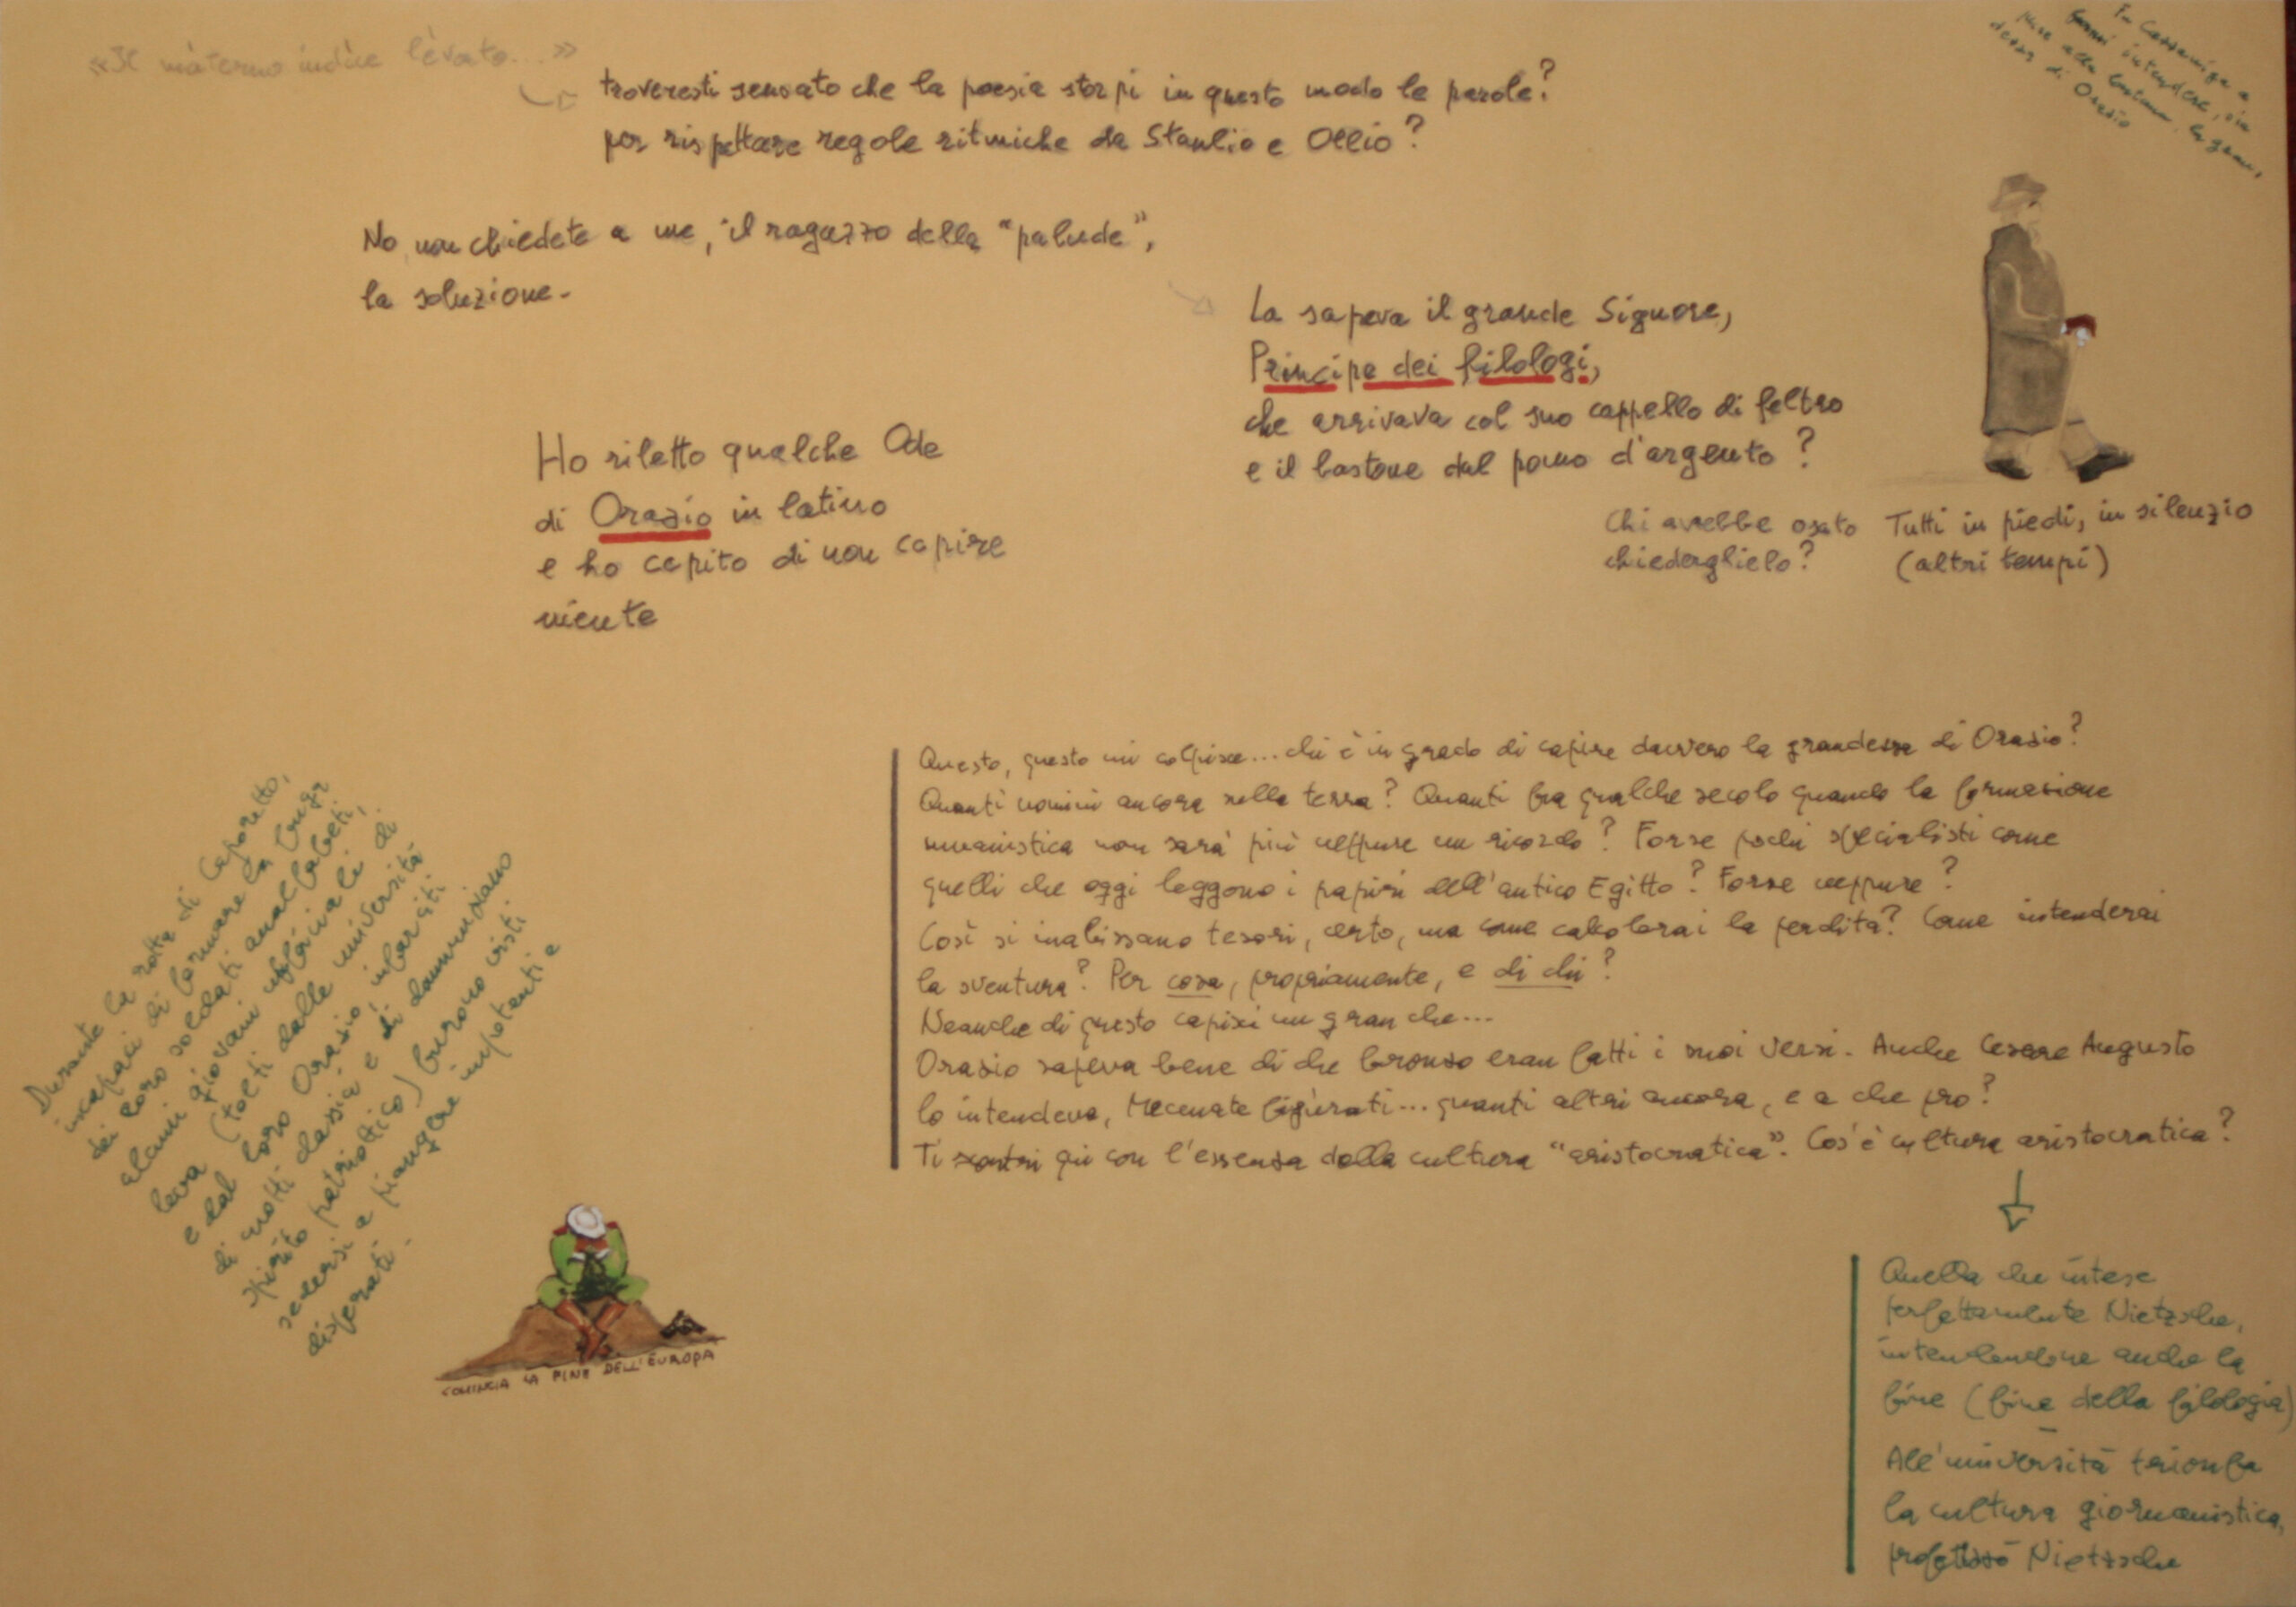 «Il màterno ìndice lèvato...»
troveresti sensato che la poesia storpi in questo modo le parole?
per rispettare regole ritmiche da Stanlio e Ollio?
No, non chiedete a me, il ragazzo della "palude",
la soluzione.
La sapeva il grande Signore,
Principe dei filologi,
che arrivava col suo cappello di feltro
e il bastone dal pomo d'argento?
Chi avrebbe osato
chiederglielo?
Tutti in piedi, in silenzio
(altri tempi)
Ho riletto qualche Ode
di Orazio in latino
e ho capito di non capire
niente
di Orazio
Questo, questo mi colpisce... chi è in grado di capire davvero la grandezza di Orazio?
Quanti uomini ancora sulla terra? Quanti fra qualche secolo quando la formazione
umanistica non sarà più neppure un ricordo? Forse pochi specialisti come
quelli che oggi leggono i papiri dell'antico Egitto? Forse neppure?
Così si inabissano tesori, certo, ma come calcolerai la perdita? Come intenderai
la sventura? Per cosa, propriamente, e di chi?
Neanche di questo capisci un gran che...
Orazio sapeva bene di che bronzo eran fatti i suoi versi. Anche Cesare Augusto
lo intendeva, Mecenate figùrati... quanti altri ancora, e a che pro?
Ti scontri qui con l'essenza della cultura "aristocratica". Cos'è cultura aristocratica?
Quella che intese
perfettamente Nietzsche,
intendendone anche la
fine (fine della filologia)
All'università trionfa
la cultura giornalistica,
profetizzò Nietzsche
Durante la rotta di Caporetto,
incapaci di fermare la fuga
dei loro soldati analfabeti,
alcuni giovani ufficiali di
leva (tolti dalle università
e dal loro Orazio, infarciti
di motti classici e di dannunziano
spirito patriottico) furono visti
sedersi a piangere impotenti e
disperati.
COMINCIA LA FINE DELL'EUROPA